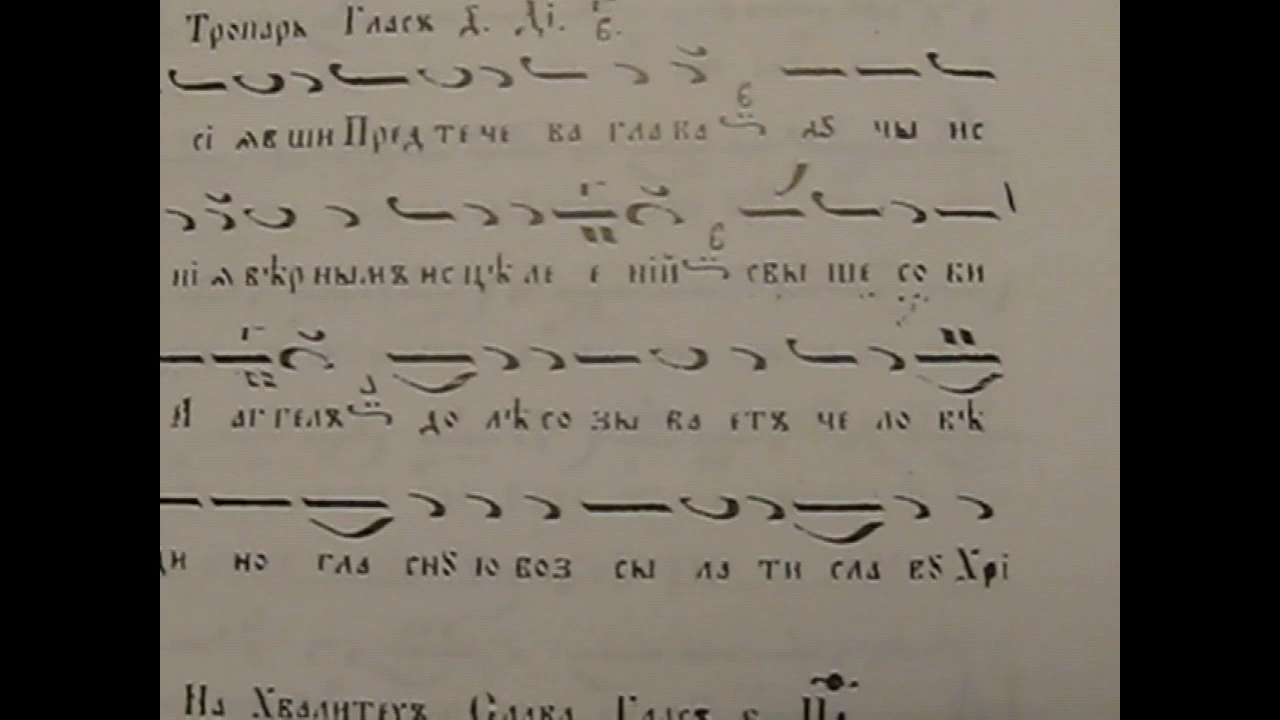 Тропарь Гласъ д. Ді. б.
сі ѧв ши Пред те че ва гла ва дꙋ чы ис
ні ѧ вѣр нымъ ис цѣ ле е ній свы ше со ви
й аг гелъ до лѣ со зы ва етъ че ло вѣ
ди но гла снꙋ ю воз сы ла ти сла вꙋ Хрі
На Хвалитехъ Слава Гласъ